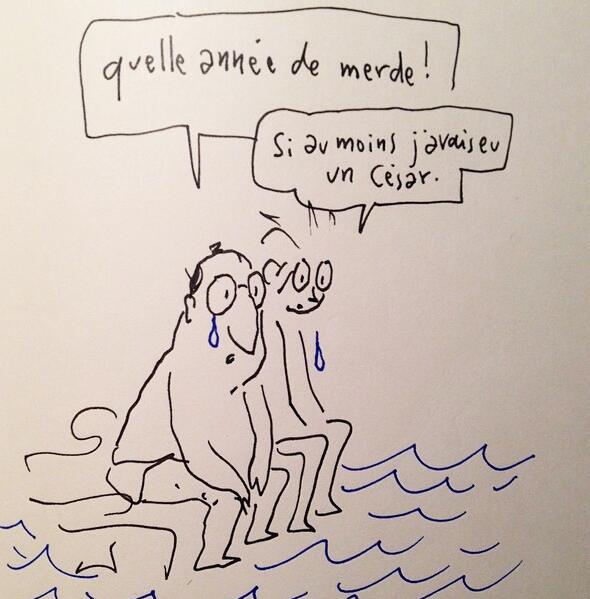 quelle année de merde!
Si au moins j'avais eu
un César.